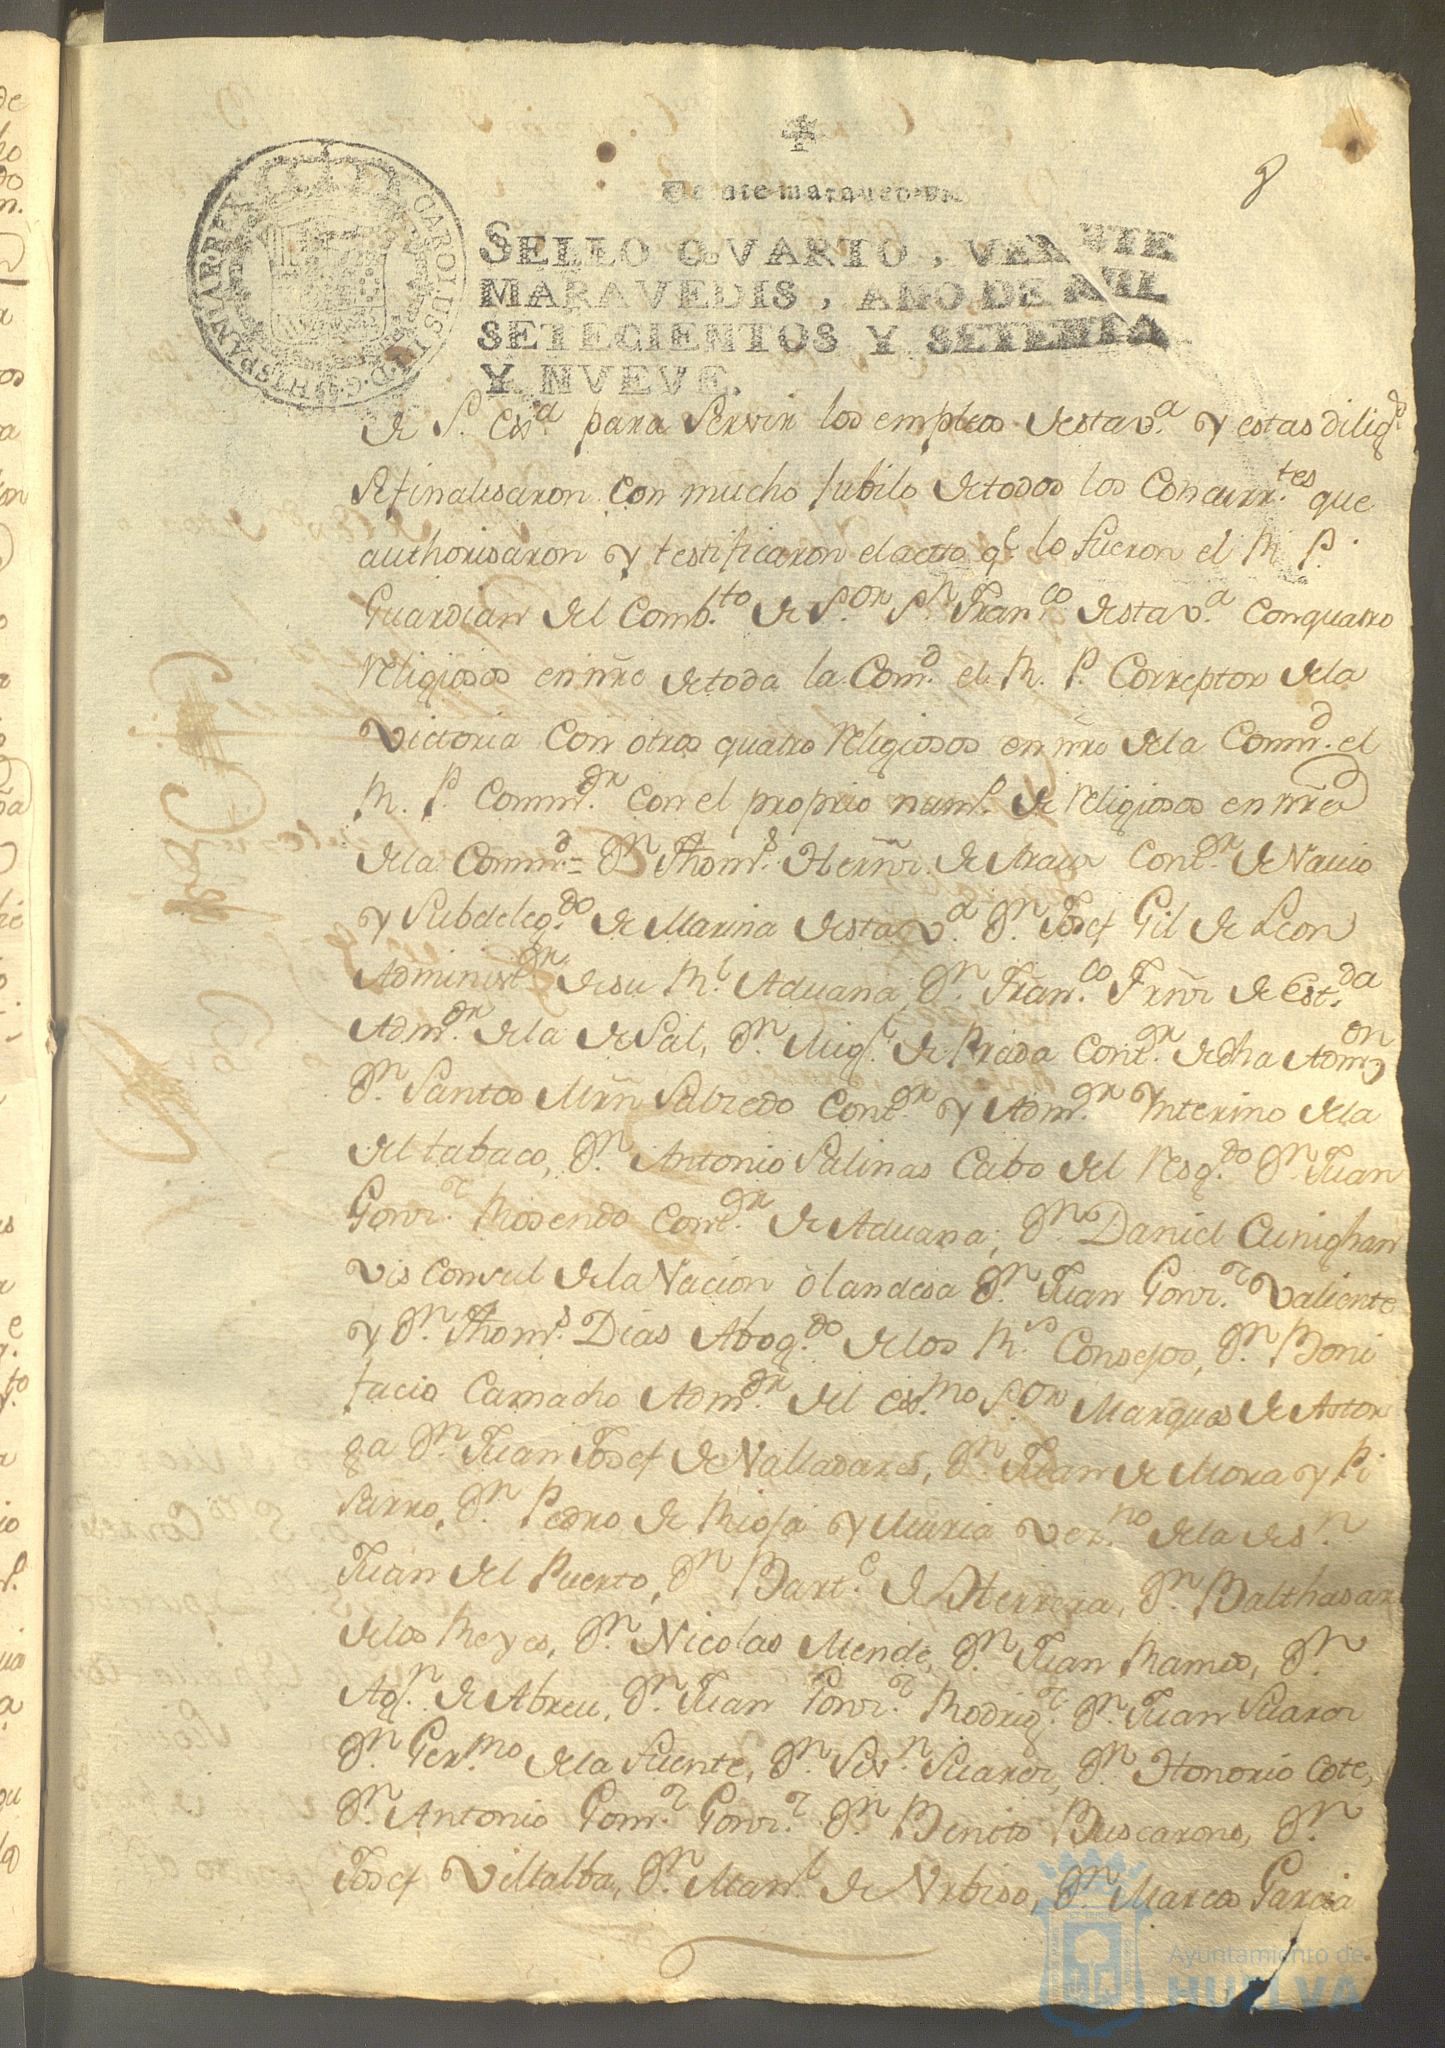 8
Veinte maravedis.
SELLO QVARTO, VEINTE
MARAVEDIS, AÑO DE MIL
SETECIENTOS Y SETENTA
Y NVEVE.
CAROLUS III D. G. HISPANIAR REX
de S. Exᵃ para servir los empleos destavᵃ y estas diligˢ
se finalisaron con mucho Jubilo de todos los Concurrᵗᵉˢ que
authorisaron y testificaron el acto qᵉ lo fueron el R. P.
Guardian del Combᵗᵒ de Sᵒʳ Sⁿ Franᶜᵒ destavᵃ con quatro
religiosos en nr̃e de toda la Comᵈ el R. P. Correptor de la
Victoria con otros quatro religiosos en nr̃e de la Comᵈ el
R. P. Commᵒʳ con el proprio numº de religiosos en nr̃e
de la Commᵈ = Dⁿ Thomˢ Herñz de Contᵒʳ de Navio
y Subdelegᵈᵒ de Marina destavᵃ Dⁿ Josef Gil de Leon
Administᵒʳ de su Rˡ Aduana, Dⁿ Franᶜᵒ Frñz de Estᵈᵃ
Admᵒʳ de la de Sal, Dⁿ Miglˡ de Prada Contᵒʳ de dha Admᵒⁿ
Dⁿ Santos Mrñ Salzedo Contᵒʳ y Admᵒʳ Ynterino de la
del tabaco, Dⁿ Antonio Salinas Cabo del Resgᵈᵒ Dⁿ Juan
Gonzᶻ Rosendo Contᵒʳ de Aduana; Dⁿ Daniel Cunighan
Vis Consul de la Nacion olandesa Dⁿ Juan Gonzᶻ Valiente
y Dⁿ Thomˢ Dias Abogᵈᵒ de los Rˢ Consejos, Dⁿ Boni
facio Camacho Admᵒʳ del exᵐᵒ Sᵒʳ Marques de Astor
ga Dⁿ Juan Josef de Valladares, Dⁿ Juan de Mora y Pi
sarro, Dⁿ Pedro de Rioja y Muria Vezⁿᵒ de la de Sⁿ
Juan del Puerto, Dⁿ Bartᵉ de Herrera, Dⁿ Balthasar
de los Reyes, Dⁿ Nicolas Mende, Dⁿ Juan Ramos, Dⁿ
Agⁿ de Abreu, Dⁿ Juan Gonzᶻ Rodrigᶻ Dⁿ Juan Suarez
Dⁿ Gerᵐᵒ de la Fuente, Dⁿ Suarez, Dⁿ Honorio Cote,
Dⁿ Antonio Gomᶻ Gonzᶻ Dⁿ Benito Buscarons, Dⁿ
Josef Villalba, Dⁿ Manˡ de Vrbiso, Dⁿ Marcos Garcia
Ayuntamiento de
HUELVA